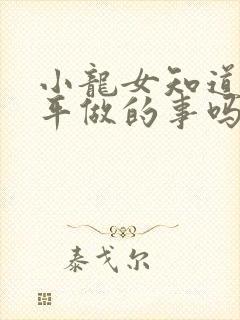 小龍女知道
平做的事吗
泰戈尔